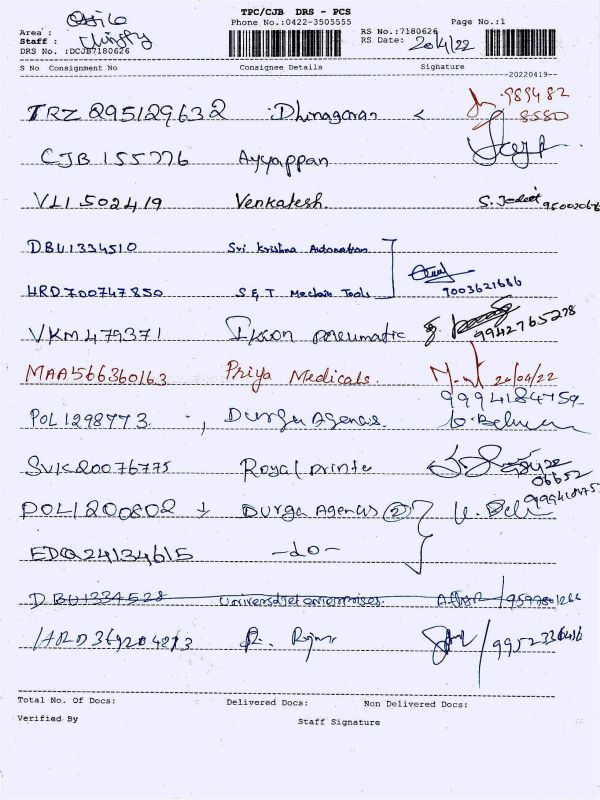 TPC/CJB DRS - PCS
Phone No.:0422-3505555 Page No.:1
Area :
Staff :
DRS No. :DCJB7180626
RS No.:7180626
RS Date: 20/4/22
S No Consignment No Consignee Details Signature
20220419
TRZ 295129632 Dhinagaran 989482
8580
CJB 155776 Ayyappan
VLI 502419 Venkatesh. S.
DBU1334510 Sri Krishna Automation
HRD700747850 S & T Meclain Tools 9003621686
VKM479371 pneumatic 9942765278
MAA566360163 Priya Medicals. 20/04/22
9994184759
POL1298773. Durga Agenas.
SVK20076775 Royal printe
06652
POL1200802 Durga Agenas (2)
EDQ24134615 -do-
DBU1334528 Universal jet enterprises.
R. Rajan
Total No. Of Docs: Delivered Docs: Non Delivered Docs:
Verified By Staff Signature